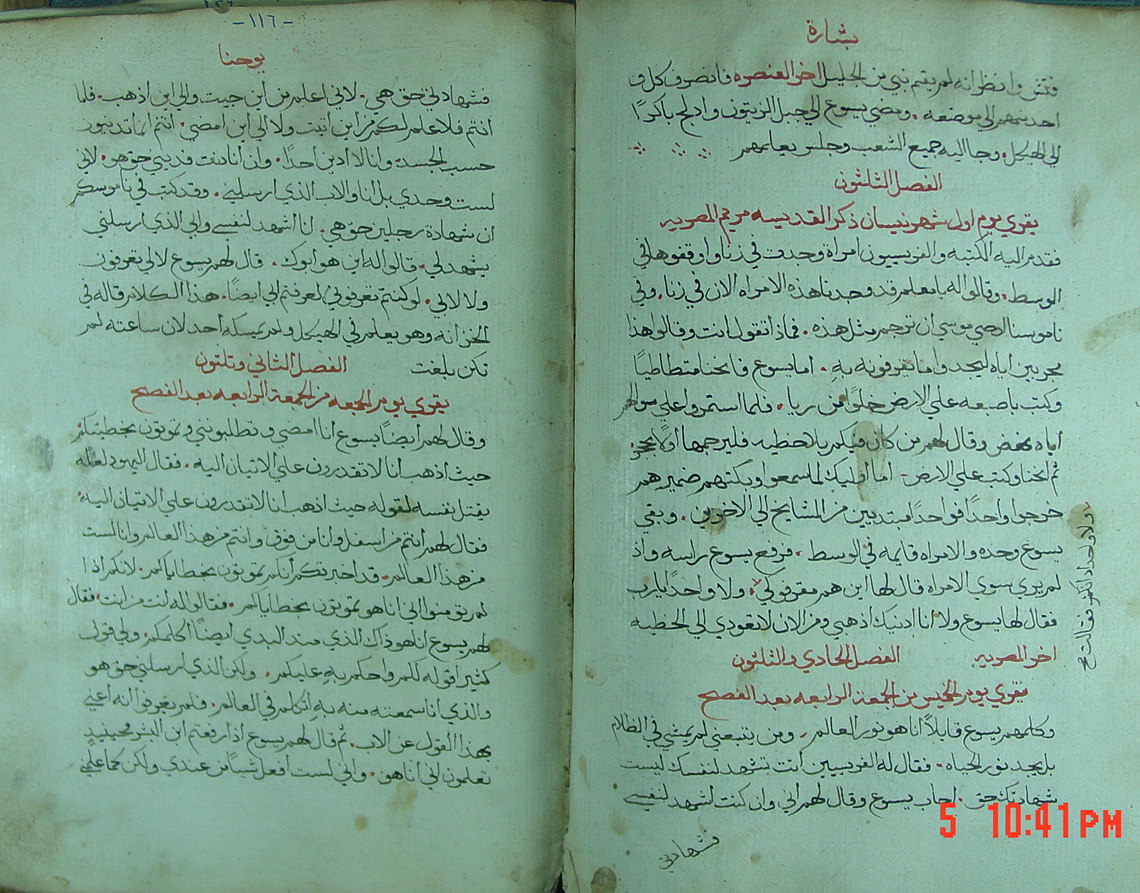 بشارة
فتش وانظر انه لم يقم نبي من الجليل اخر العنصره فانصرف كل و
احد منهم الي موضعه . ومضي يسوع الي جبل الزيتون وادلج باكرًا
الي الهيكل . وجا اليه جميع الشعب وجلس يعلمهم
الفصل الثلثون
يقري يوم اول شهر نيسان ذكر القديسه مريم المصريه
فقدم اليه الكتبه والفريسيون امراة وجدت في زنا واوقفوها في
الوسط . وقالوا له يا معلم قد وجدنا هذه الامراه الان في زنا . وفي
ناموسنا اوصي موسي ان ترجم مثل هذه . فماذا تقول انت وقالوا هذا
مجربين اياه ليجدوا ما يقرفونه به . اما يسوع فانحنا متطاطيًا
وكتب باصبعه علي الارض خلوًا من ريا . فلما استمروا علي سوالهم
اياه نهض وقال لهم من كان فيكم بلا خطيه فليرجمها اولًا بحجر .
ثم انحنا وكتب علي الارض - اما اوليك لما سمعوا وبكتهم ضميرهم
خرجوا واحدًا فواحدًا مبتديين من المشايخ الي الاخرين . وبقي
يسوع وحده والامراه قايمه في الوسط . فرفع يسوع راسه واذ
لم يري سوي الامراه قال لها اين هم مقرفوكي . ولا واحدًا يا رب
فقال لها يسوع ولا انا ادينك اذهبي ومن الان لا تعودي الي الخطيه
اخر المصريه الفصل الحادي والثلثون
يقري يوم الخميس من الجمعة الرابعه بعد الفصح
وكلمهم يسوع قايلًا انا هو نور العالم . ومن يتبعني لم يمشي في الظلام
بل يجد نور الحياه . فقال له الفريسيين انت تشهد لنفسك ليست
شهادتك حق . اجاب يسوع وقال لهم اني وان كنت اشهد لنفسي
فشهادتي
ولا واحد دانك فقالت صح
-١١٦-
يوحنا
فشهادتي حق هي . لاني اعلم من أين جيت والي اين اذهب . فاما
انتم فلا علم لكم من اين اتيت ولا الي اين امضي . انتم انما تدينون
حسب الجسد . وانا لا ادين احدًا . وان انا دنت فديني حق هو . لاني
لست وحدي بل انا والاب الذي ارسلني . وقد كتب في ناموسكم
ان شهادة رجلين حق هي . انا اشهد لنفسي وابي الذي ارسلني
يشهد لي . قالوا له اين هو ابوك . قال لهم يسوع لا لي تعرفون
ولا لابي . لو كنتم تعرفوني لعرفتم ابي ايضًا . هذا الكلام قاله في
الخزانه وهو يعلم في الهيكل ولم يمسكه أحد لان ساعته لم
تكن بلغت الفصل الثاني وتلتون
يقري يوم الجمعه من الجمعة الرابعه بعد الفصح
وقال لهم ايضًا يسوع انا امضي وتطلبونني وتموتون بخطيتكم
حيث اذهب انا لا تقدرون علي الاتيان اليه . فقال اليهود لعله
يقتل نفسه لقوله حيث اذهب انا لا تقدرون علي الاتيان اليه .
فقال لهم أنتم من اسفل وانا من فوق وانتم من هذا العالم وانا لست
من هذا العالم . قد اخبرتكم أنكم تموتون بخطاياكم . لانكم اذا
لم تومنوا اني انا هو تموتون بخطاياكم . فقالوا له انت من انت . فقال
لهم يسوع انا هو ذاك الذي منذ البدي ايضًا اكلمكم . ولي قول
كثير اقوله لكم واحكم به عليكم . ولكن الذي ارسلني حق هو
والذي انا سمعته منه به اتكلم في العالم . فلم يعرفوا انه اعني
بهذا القول عن الاب . ثم قال لهم يسوع اذا رفعتم ابن البشر فحينيذٍ
تعلمون اني انا هو . واني لست أفعل شيًا من عندي ولكن كما علمني
5 10:41 PM